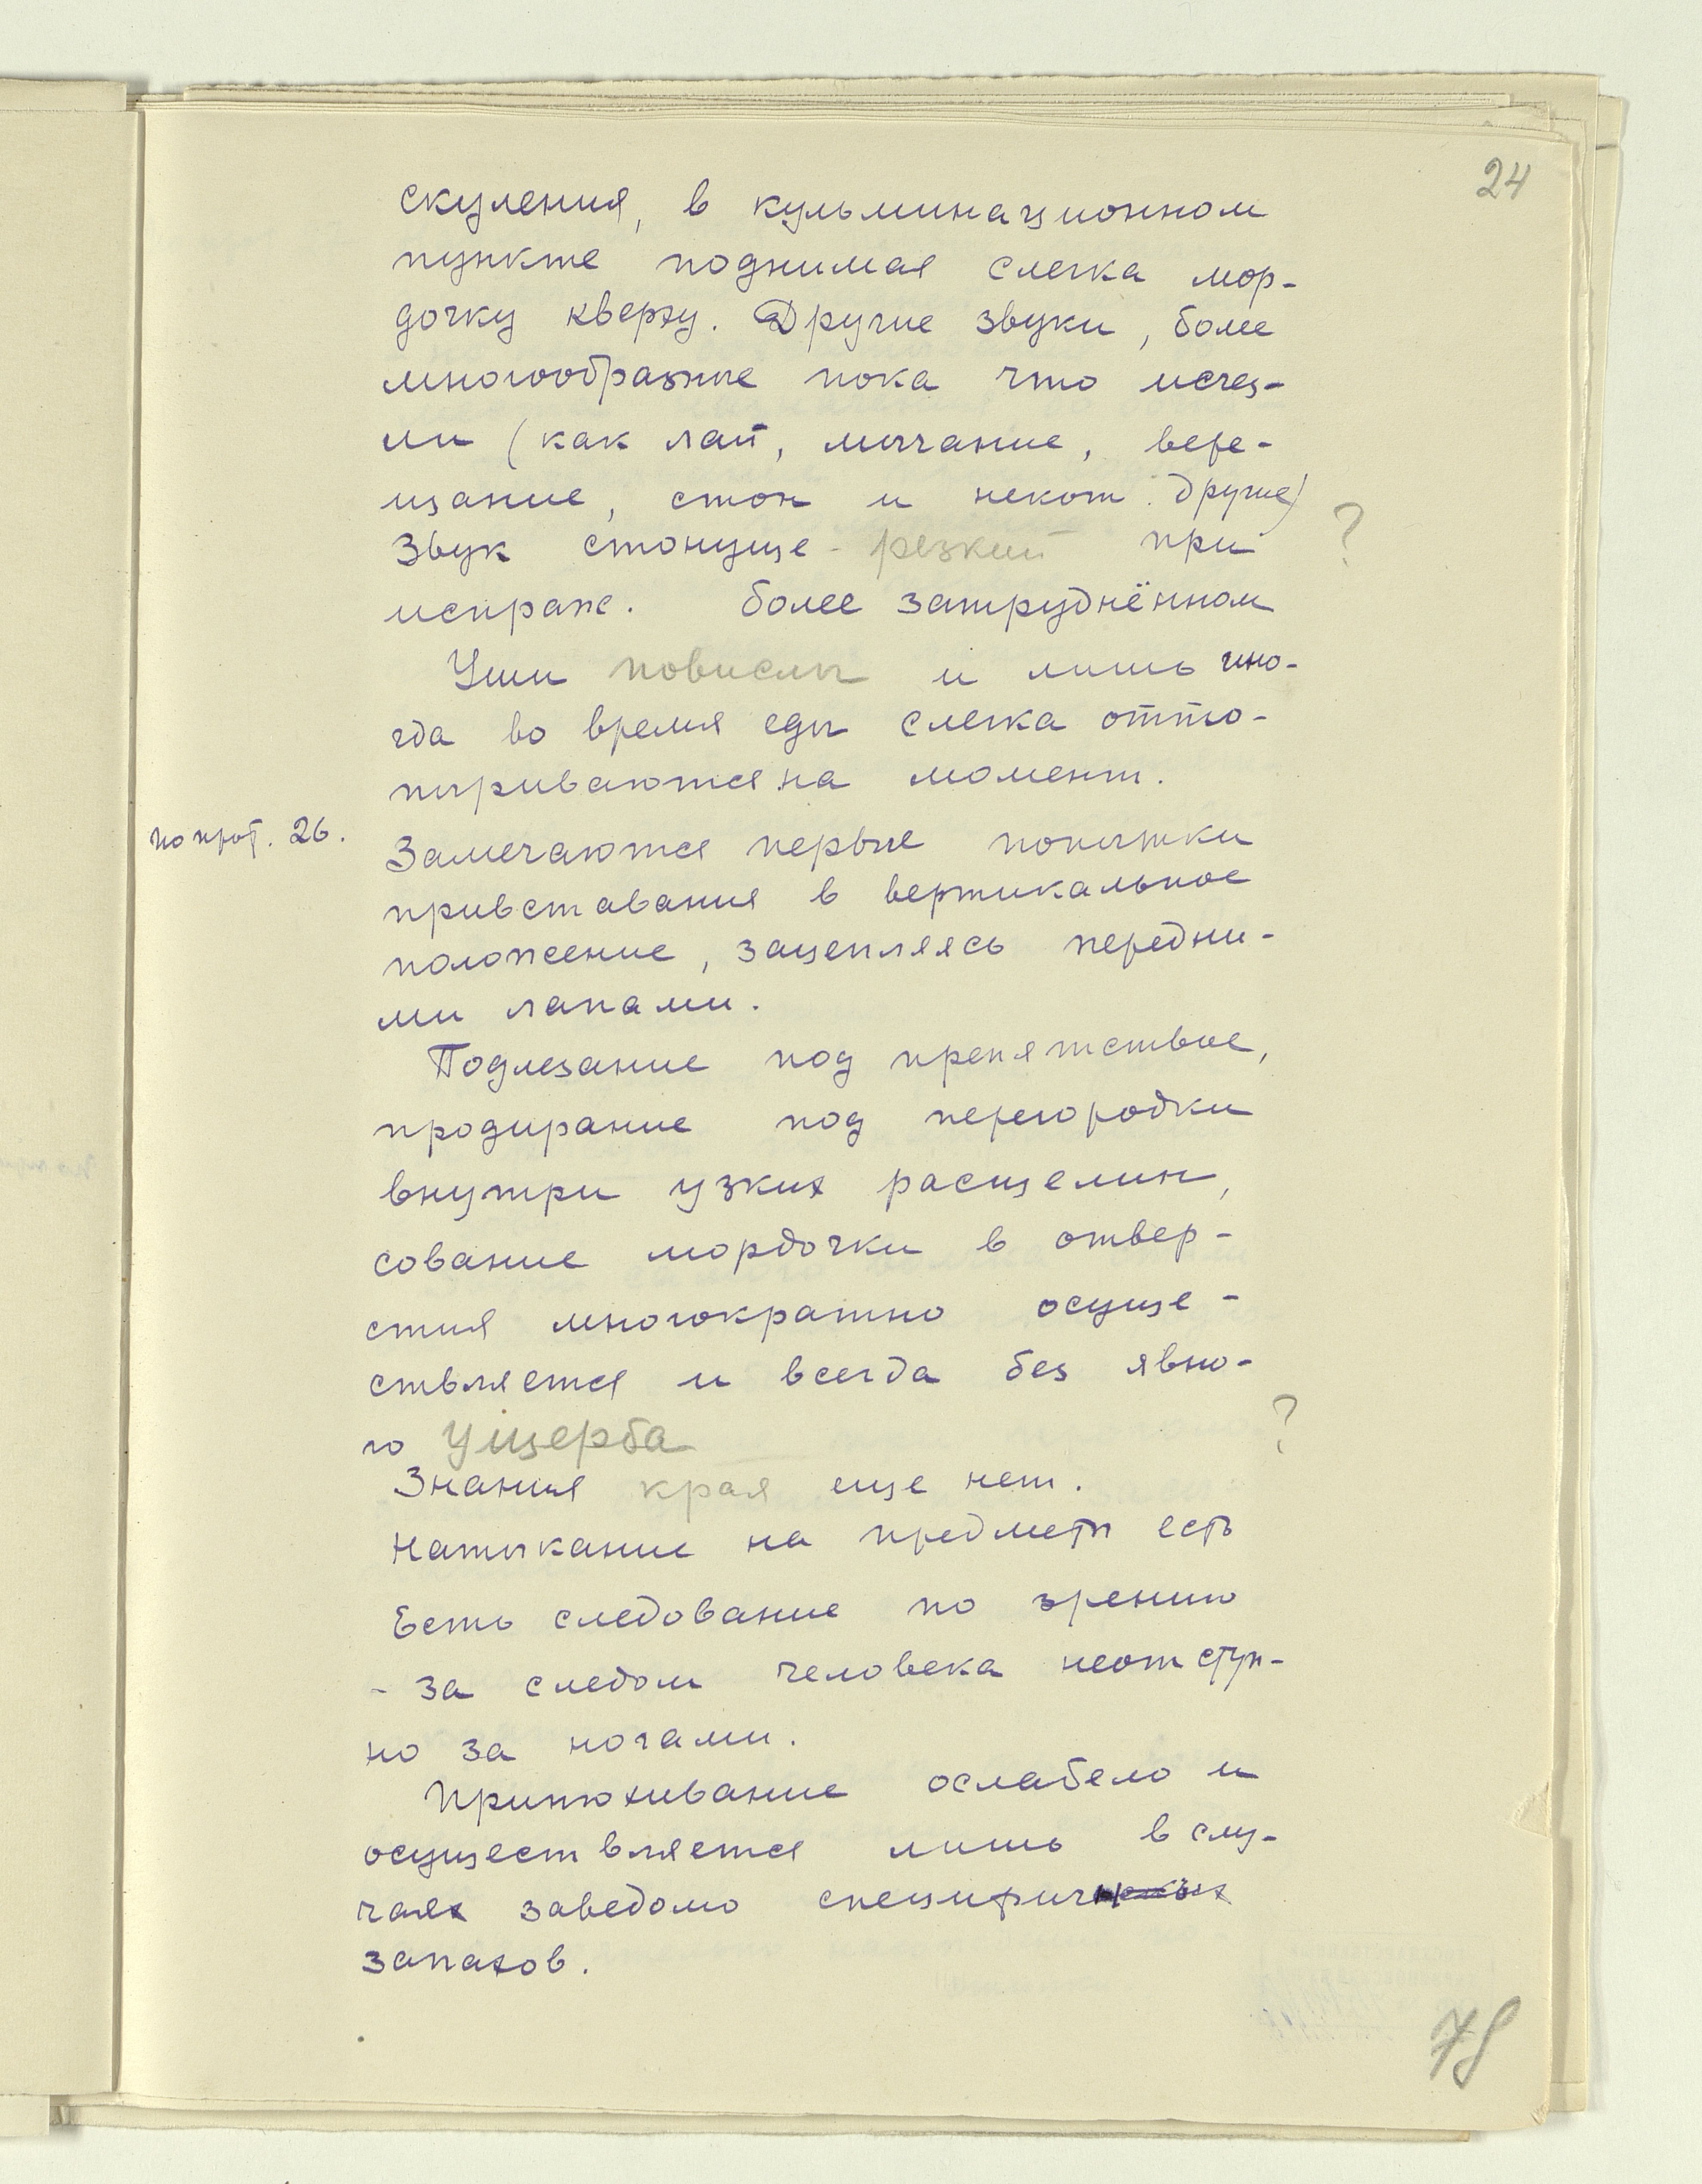 24
скуления, в кульминационном
пункте поднимая слегка мор-
дочку кверху. Другие звуки, более
многообразные пока что исчез-
ли (как лай, мычание, вере-
щание, стон и некот. другие)
Звук стонуще-резкий при ?
испраж. более затруднённом
Уши повислы и лишь ино-
гда во время еды слегка отто-
пыриваются на момент.
по прот. 26.
Замечаются первые попытки
привставания в вертикальное
положение, зацепляясь передни-
ми лапами.
Подлезание под препятствие,
продирание под перегородки
внутри узких расщелин,
сование мордочки в отвер-
стия многократно осуще-
ствляется и всегда без явно-
го ущерба ?
Знания края еще нет.
Натыкание на предметы есть
Есть следование по зрению
- за следом человека неотступ-
но за ногами.
Принюхивание ослабело и
осуществляется лишь в слу-
чаях заведомо специфич
запахов.
78